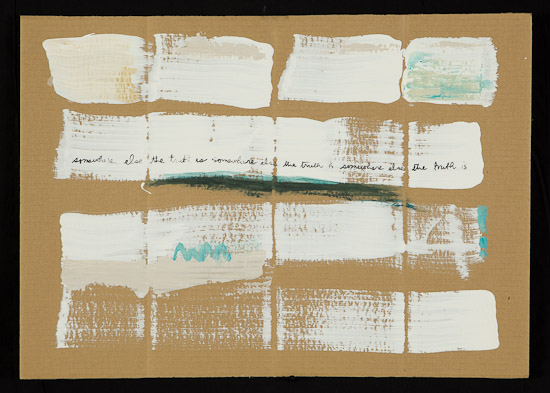 somewhere else the truth is somewhere else the truth is somewhere else the truth is